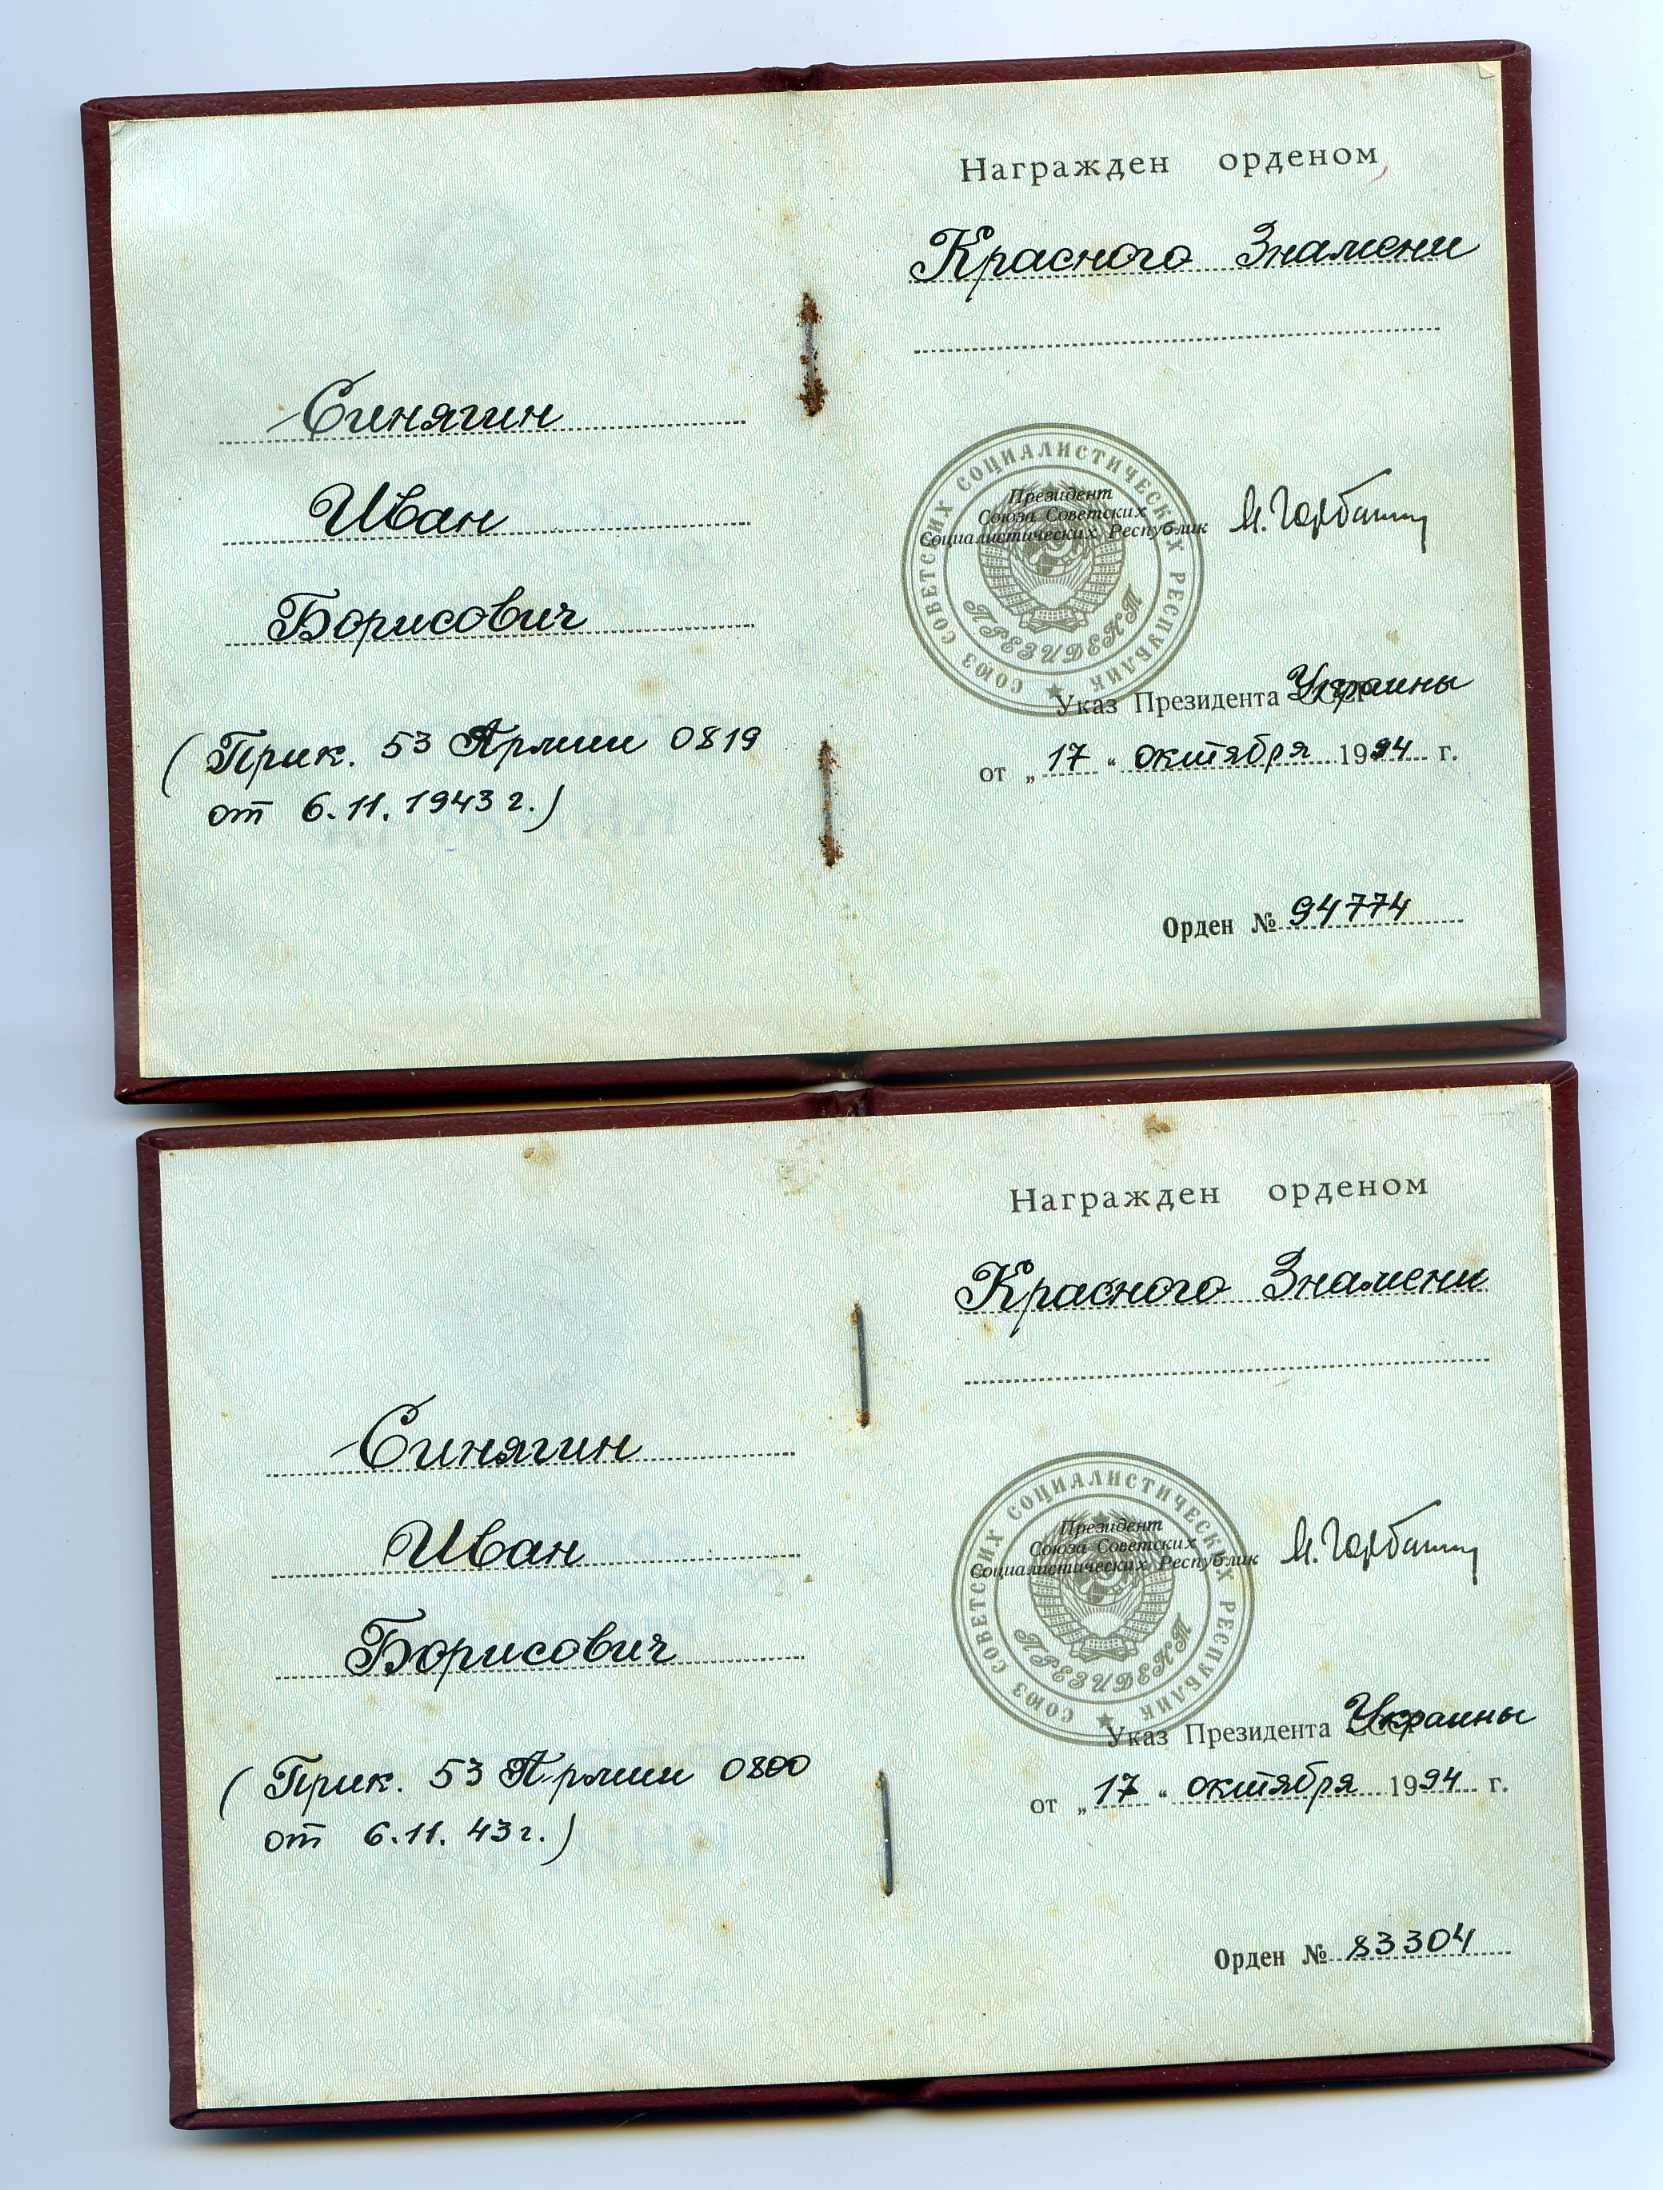 Синягин
Иван
Борисович
(Прик. 53 Армии 0819
от 6.11.1943 г.)
Награжден орденом
Красного Знамени
СОЮЗ СОВЕТСКИХ СОЦИАЛИСТИЧЕСКИХ РЕСПУБЛИК
ПРЕЗИДЕНТ
Президент
Союза Советских
Социалистических Республик
М. Горбачев
Указ Президента Украины
от „17“ октября 1994 г.
Орден № 94774
Синягин
Иван
Борисович
(Прик. 53 Армии 0800
от 6.11.43 г.)
Награжден орденом
Красного Знамени
СОЮЗ СОВЕТСКИХ СОЦИАЛИСТИЧЕСКИХ РЕСПУБЛИК
ПРЕЗИДЕНТ
Президент
Союза Советских
Социалистических Республик
М. Горбачев
Указ Президента Украины
от „17“ октября 1994 г.
Орден № 83304